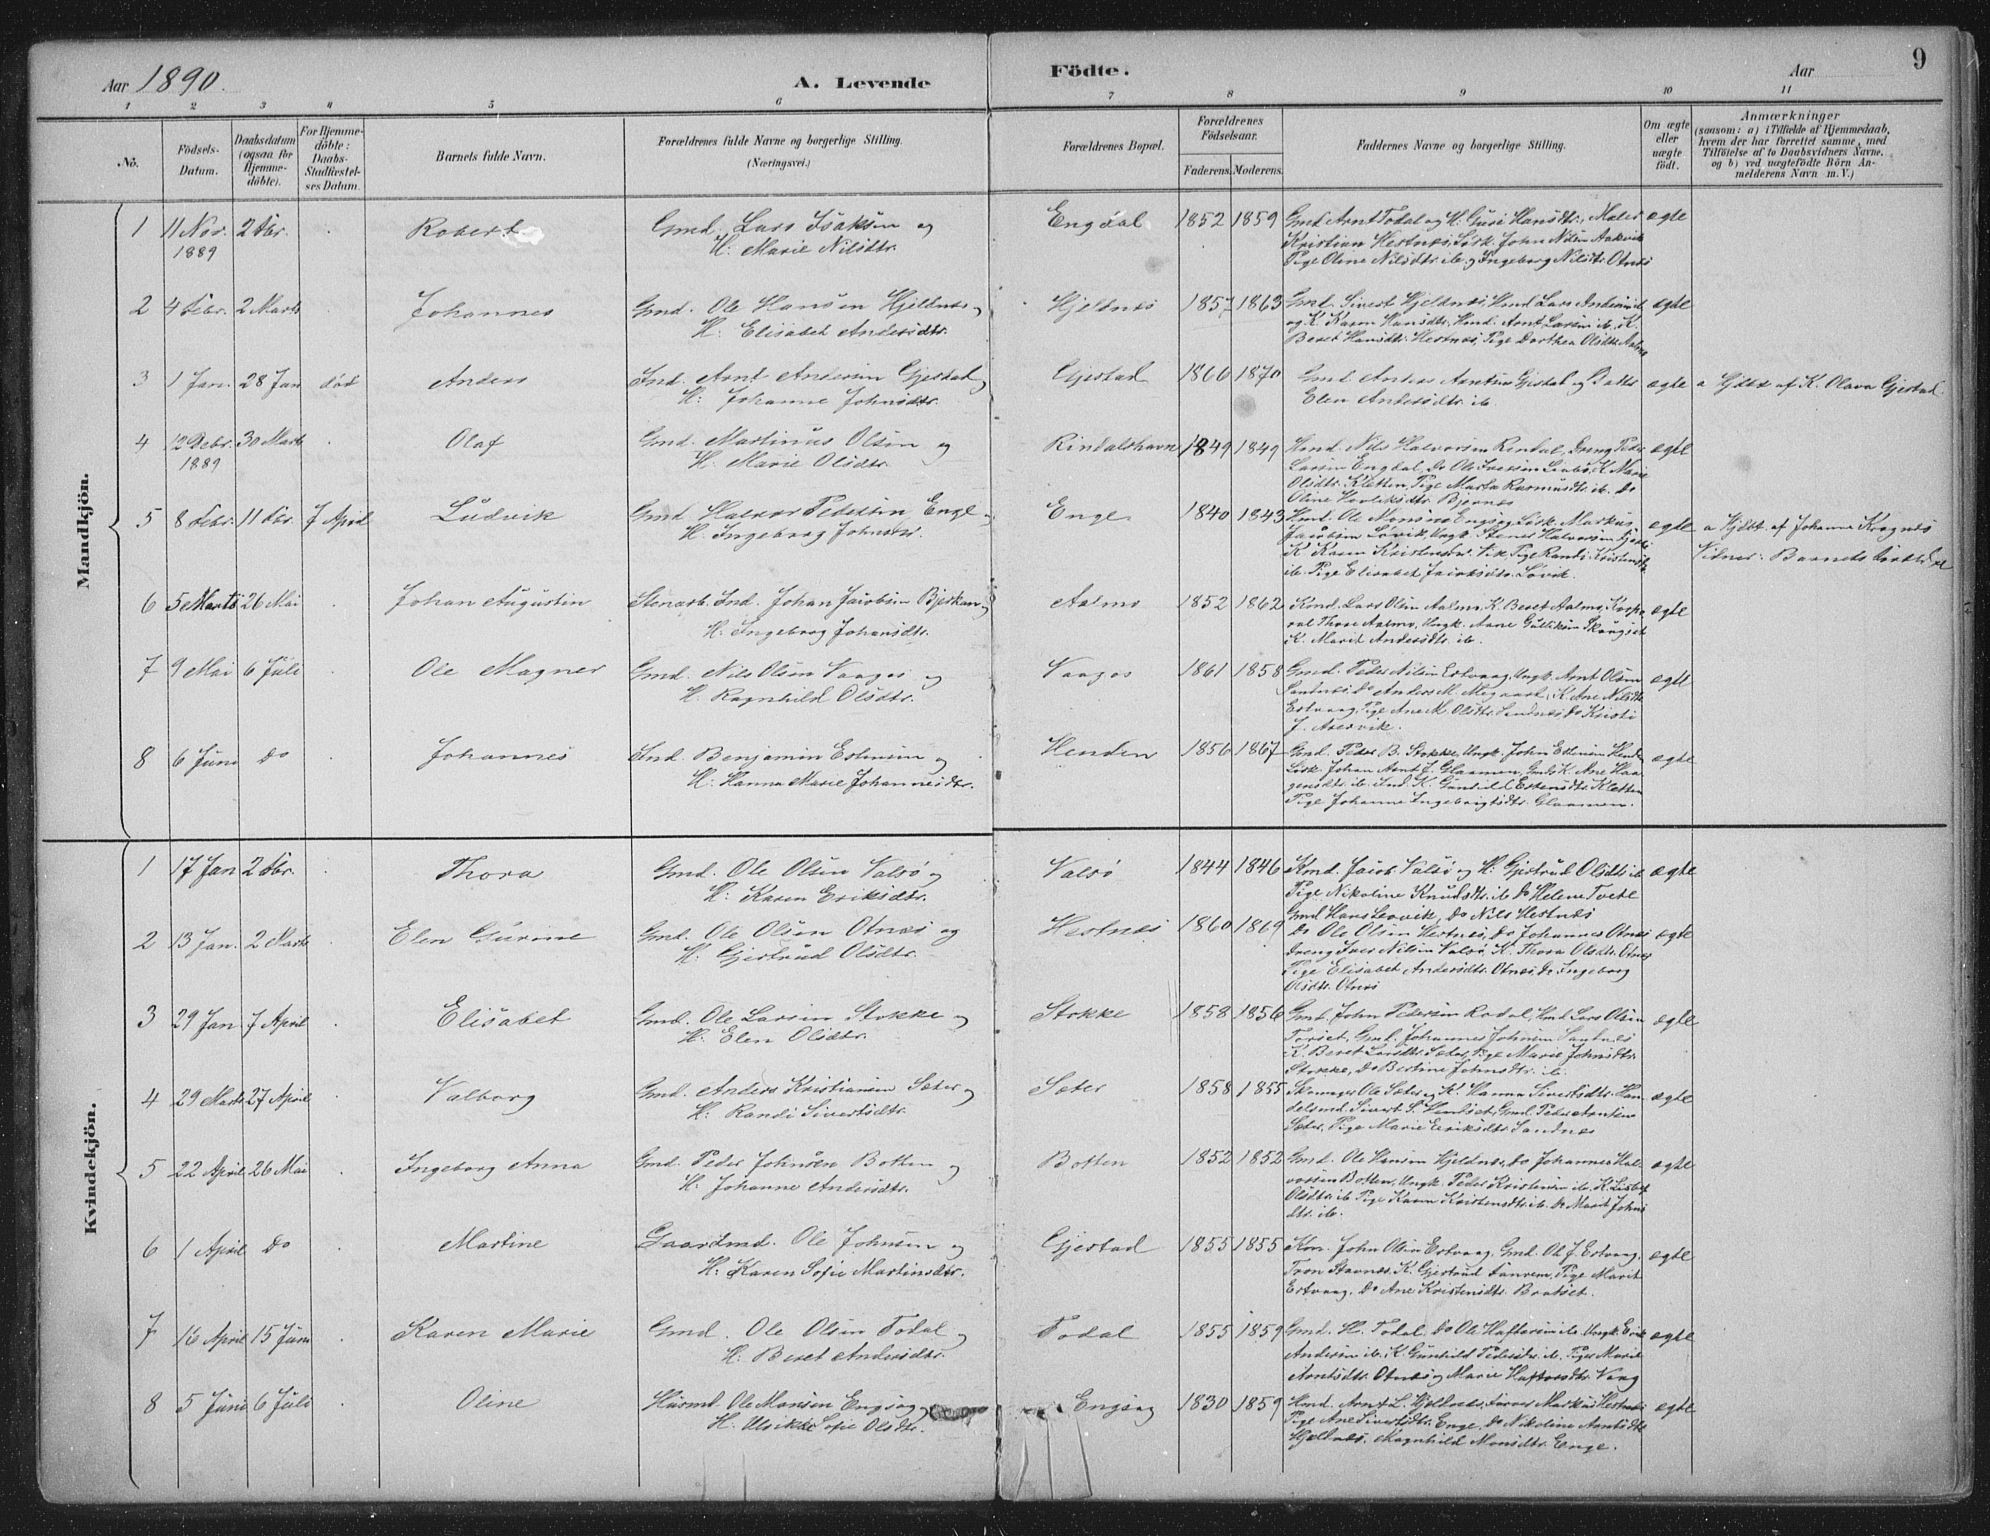 Aar 1890. A. Levende Födte. Aar 9
1 2 3 4 5 6 7 8 9 10 11
No. Födsels-Datum. Daabsdatum (ogsaa for Hjemme-döbte). For Hjemme-döbte: Daabs-Stadfæstel-ses Datum. Barnets fulde Navn. Forældrenes fulde Navne og borgerlige Stilling. (Næringsvei.) Forældrenes Bopæl. Forældrenes Födselsaar. Faderens. Moderens. Faddernes Navne og borgerlige Stilling. Om ægte eller uægte födt. Anmærkninger (saasom: a) i Tilfælde af Hjemmedaab, hvem der har forrettet samme, med Tilföielse af to Daabsvidners Navne, og b) ved uægtefödte Börn An-melderens Navn m. V.)
Mandkjön.
1 11 Nov. 1889 2 Fbr. Robert Gmd. Lars Isaksen og Engdal 1852 1859 Gmd. Arnt Todal og H. Guri Hansdtr., Maler ægte
H. Marie Nilsdtr. Kristian Hestnes, Fisk. John Nilsen Aakvik
Pige Oline Nilsdtr. ib. og Ingeborg Nilsdtr. Otnes
2 4 Febr. 2 Marts Johannes Gmd. Ole Hansen Hjeldnes og Hjeldnes 1857 1863 Gmd. Sivert Hjeldnes, Hmd. Lars Andersen ib. ægte
H. Elisabet Andersdtr. og K. Karen Hansdtr., Hmd. Arnt Larsen ib., K.
Beret Hansdtr. Hestnes, Pige Dorthea Olsdtr. Aalmo
3 1 Jan. 28 Jan död Anders Ind. Arnt Andersen Gjestad og Gjestad 1866 1870 Gmd. Anders Arntsen Gjestad og Datter ægte a Hjdbt af K. Olava Gjestad.
H. Johanne Johnsdtr. Elen Andersdtr. ib.
4 12 Debr. 1889 30 Marts Olaf Gmd. Martinus Olsen og Rindalshavn 1849 1849 Hmd. Nils Halvorsen Rindal, Dreng Peder ægte
H. Marie Olsdtr. Larsen Engdal, Do Ole Iversen, K. Marie
Olsdtr. Kletten, Pige Marta Rasmusdtr. ib. Do
Oline
5 8 Febr. 11 Fbr. 7 April Ludvik Gmd. Halvor Pedersen Enge og Enge 1840 1843 Hmd. Ole Monsen Engsog, Fisk. Markus ægte a Hjdbt. af Johanne Krognes
H. Ingeborg Johnsdtr. Jacobsen Lövik, Ungk. Halvorsen Vidner: Barnets
K. Karen Kristensdtr. Vik, Pige Randi Kristensdtr.
ib. Pige Elisabet Jacobsdtr. Lövik.
6 5 Marts 26 Mai Johan Augustin Stenarb. Ind. Johan Jacobsen og Aalmo 1852 1862 Kmd. Lars Olsen Aalmo, K. Beret Aalmo, ægte
H. Ingeborg Johansdtr. Aalmo, Ungk. Arne Gulliksen
K. Marit Andersdtr. ib.
7 9 Mai 6 Juli Ole Magner Gmd. Nils Olsen Vaagos og Vaagos 1861 1858 Gmd. Peder Nilsen Ertvaag, Ungk. Arnt Olsen ægte
H. Ragnhild Olsdtr. Do Anders M. Megaard, K. Ane Nilsdtr.
Ertvaag, Pige Ane M. Olsdtr. Do Kristi
J.
8 6 Juni Do Johannes Ind. Benjamin Estensen og Henden 1856 1867 Gmd. Peder B. Stokke, Ungk. John Estensen Henden ægte
H. Hanna Marie Johannesdtr. Fisk. Johan Arnt J. Glaamen, K. Ane
ib. Ind. K. Gunhild Estensdtr. Kletten
Pige Johanne Ingebrigtsdtr. Glaamen.
Kvindekjön.
1 17 Jan 2 Fbr. Thora Gmd. Ole Olsen Valsö og Valsö 1844 1846 Kmd. Jacob Valsö og H. Gjertrud Olsdtr. ib ægte
H. Karen Eriksdtr. Pige Nikoline Knudsdtr. ib. Do Helene Tvete
2 13 Jan. 2 Marts Elen Gurine Gmd. Ole Olsen Otnes og Hestnes 1860 1869 Gmd Hans Leervik, Do Nils Hestnes ægte
H. Gjertrud Olsdtr. Do Ole Olsen Hestnes, Do Johannes Otnes
Dreng Iver Nilsen Valsö, K. Thora Olsdtr. Otnes
Pige Elisabet Andersdtr. Otnes, Do Ingeborg
Olsdtr. Otnes
3 29 Jan 7 April Elisabet Gmd. Ole Larsen Stokke og Stokke 1858 1856 Gmd. John Pedersen Rodal, Hmd Lars Olsen ægte
H. Elen Olsdtr. Gmd. Johannes Johnsen
K. Beret Larsdtr. Sæter, Pige Marie Johnsdtr.
Stokke, Do Bertine Johnsdtr. ib.
4 29 Marts 27 April Valborg Gmd. Anders Kristiansen Sæter og Sæter 1858 1855 Skomager Ole Sæter og K. Hanna Sivertsdtr. Han- ægte
H. Randi Sivertsdtr. delsmd. Sivert S. Gmd. Peder Arntsen
Sæter, Pige Marie Eriksdtr. Sandnes
5 22 April 26 Mai Ingeborg Anna Gmd. Peder Johnsen Botten og Botten 1852 1852 Gmd. Ole Hansen Hjeldnes, Do Johannes Hal- ægte
H. Johanne Andersdtr. vorsen Botten, Ungk. Peder Kristensen ib. K. Lisbet
Olsdtr. ib. Pige Karen Kristensdtr. ib. Do Marit Johns
dtr. ib.
6 1 April Do Martine Gaardmd. Ole Johnsen og Gjestad 1855 1855 Kmd. John Olsen Ertvaag, Gmd. Ole J. Ertvaag, ægte
H. Karen Sofie Martinsdtr. Tron Stavnes, K. Gjertrud, Pige Marit
Ertvaag, Do Ane Kristensdtr. Bratset.
7 16 April 15 Juni Karen Marie Gmd. Ole Olsen Todal og Todal 1855 1859 Gmd. H. Todal, Do Ole Haftorsen ib. Ungk. Erik ægte
H. Beret Andersdtr. Andersen ib. K. Gunhild Pedersdtr. ib. Piger Marit
Arntsdtr. Otnes og Marie Haftorsdtr. Vaag
8 5 Juni 6 Juli Oline Husmd. Ole Monsen Engsog og Engsog 1830 1859 Hmd. Arnt L. Hjeldnes, Markus Hestnes ægte
H. Ulrikke Sofie Olsdtr. Pige Ane Sivertsdtr. Enge, Do Nikoline Arntsdtr.
Hjeldnes, Magnhild Monsdtr. Enge.